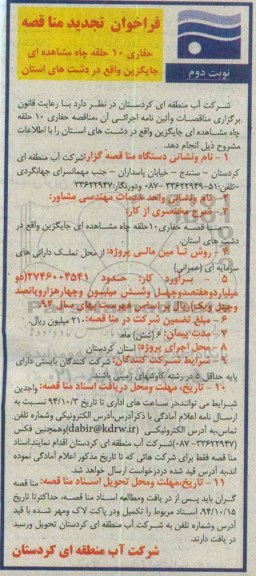 فراخوان تجدید مناقصه
حفاری ۱۰ حلقه چاه مشاهده ای
جایگزین واقع در دشت های استان
نوبت دوم
شرکت آب منطقه ای کردستان در نظر دارد با رعایت قانون
برگزاری مناقصات وآئین نامه اجرائی آن ،مناقصه حفاری ۱۰ حلقه
چاه مشاهده ای جایگزین واقع در دشت های استان را با اطلاعات
مشروح ذیل انجام دهد.
۱ - نام ونشانی دستگاه مناقصه گزار:شرکت آب منطقه ای
کردستان - سنندج - خیابان پاسداران - جنب مهمانسرای جهانگردی
-تلفن:۵۱-۳۳۶۲۲۹۴۹- ۰۸۷ ودورنگار:۳۳۶۲۲۹۴۷
۲ - نام ونشانی واحد خدمات مهندسی مشاور:
۳ - شرح مختصری از کار:
مناقصه حفاری۱۰حلقه چاه مشاهده ای جایگزین واقع در
دشت های استان.
۴ - روش تامین مالی پروژه: از محل تملک دارائی های
سرمایه ای (عمرانی)
۵ - برآورد کار: حدود ۲۷۴۶۰۰۴۵۴۱(دو
میلیاردوهفتصدوچهل وشش میلیون وچهارهزاروپانصد
وچهل ویک)ریال براساس فهرست بهای سال ۹۴
۶ - مبلغ تضمین شرکت در مناقصه: ۲۱۰ میلیون ریال.
۷ - مدت پیمان: ۶ (شش) ماه.
۸ - محل اجرای پروژه: استان کردستان
۹ - شرایط شرکت کنندگان: شرکت کنندگان بایستی دارای
پایه حداقل ۵ در رشته کاوشهای زمینی باشند
۱۰ - تاریخ، مهلت ومحل دریافت اسناد مناقصه: واجدین
شرایط می توانند،در ساعت های اداری تا تاریخ ۹۴/۱۰/۳ نسبت به
ارسال نامه اعلام آمادگی با ذکرآدرس،آدرس الکترونیکی وشماره تلفن
تماس،به آدرس الکترونیکی (dabir@kdrw.ir)وهمچنین فکس
(۳۳۶۲۲۹۴۷-۰۸۷)شرکت آب منطقه ای کردستان اقدام نمایند.اسناد
مناقصه فقط برای شرکت هائی که تا تاریخ مذکور اعلام آمادگی نموده
اند،به آدرس قید شده دردرخواست ارسال خواهد شد.
۱۱ - تاریخ،مهلت ومحل تحویل اسناد مناقصه: مناقصه
گران باید پس از در یافت ومطالعه اسناد مناقصه، حداکثرتا تاریخ
۹۴/۱۰/۱۵، اسناد مربوط را تکمیل ودر پاکت لاک ومهر شده با قید
آدرس وشماره تلفن به شرکت آب منطقه ای کردستان تحویل ورسید
در یافت دارند.
شرکت آب منطقه ای کردستان